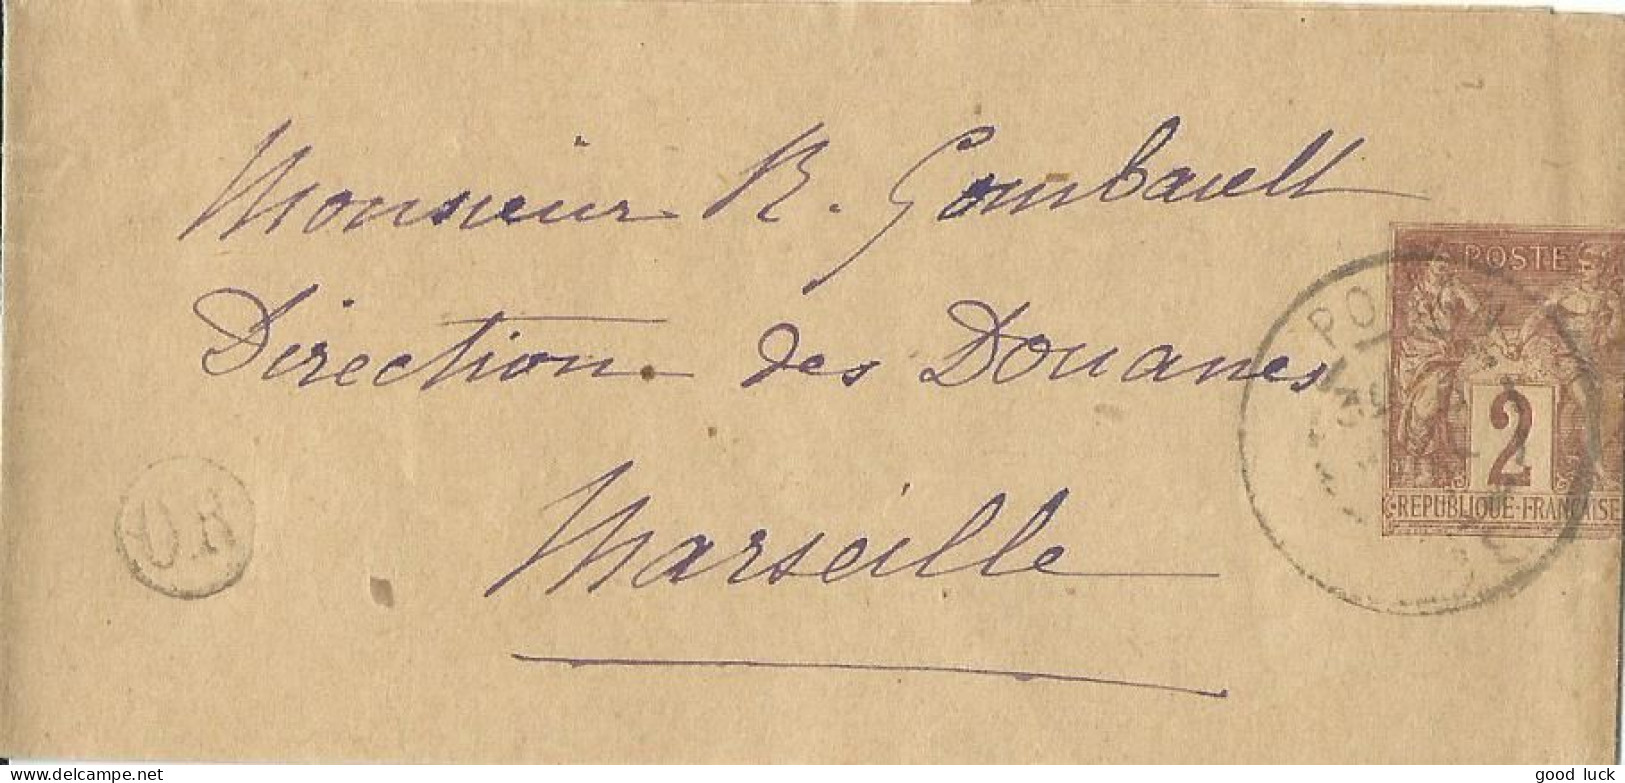 Monsieur R. Gombault
Direction des Douanes
Marseille
O.R
POSTE
2
REPUBLIQUE-FRANCAISE
delcampe.net
good luck